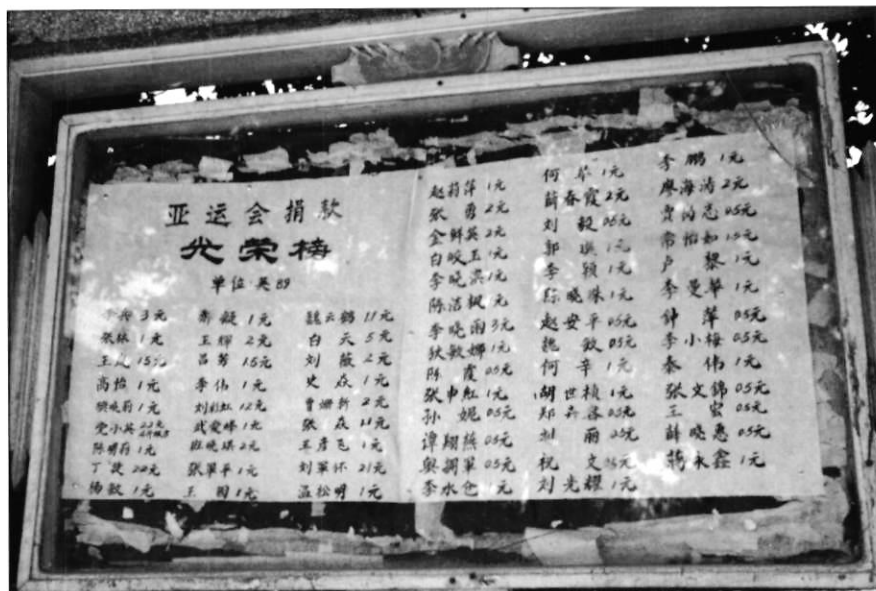 亚运会捐款
光荣榜
单位 英89
3元
张林 1元
王 1.5元
高怡 1元
晓莉 1元
党小英
陈明莉 1元
丁 2.2元
杨敏 1元
1元
王辉 2元
吕芳 1.5元
李伟 1元
刘彩虹 1.2元
武爱峰 1元
班晓琪 2元
张军平 1元
王 1元
魏云鹤 1.1元
白天 5元
刘薇 2元
史焱 1元
曹姗新 2元
张焱 1.1元
王彦飞 1元
刘军怀 2.1元
温松明 1元
赵莉萍 1元
张勇 2元
金鲜英 2元
白皎玉 1元
李晓洪 1元
陈洁枫 1元
李晓雨 3元
狄敦娜 1元
陈霞 0.5元
张中虹 1元
孙妮 0.5元
谭翔燕 0.5元
军 0.5元
李水仓 1元
何苹 1元
薛春霞 2元
刘毅 0.5元
郭 1元
李颖 1元
晓咏 1元
赵安平 0.5元
魏敏 0.5元
何辛 1元
胡世桢 1元
郑卉蓉 0.5元
刘丽 0.5元
祝文 0.5元
刘光耀 1元
李鹏 1元
廖海涛 2元
贾 0.5元
常怡如 1.5元
卢黎 1元
李曼华 1元
钟萍 0.5元
李小梅 0.5元
秦伟 1元
张文锦 0.5元
王宏 0.5元
薛晓惠 0.5元
蒋永鑫 1元